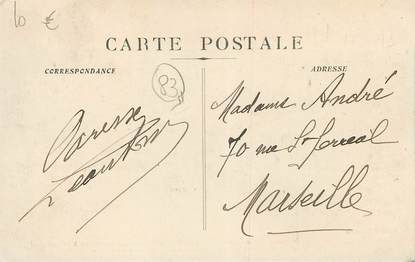 10 €
CARTE POSTALE
CORRESPONDANCE
ADRESSE
83
Madame André
70 rue St Ferréol
Marseille